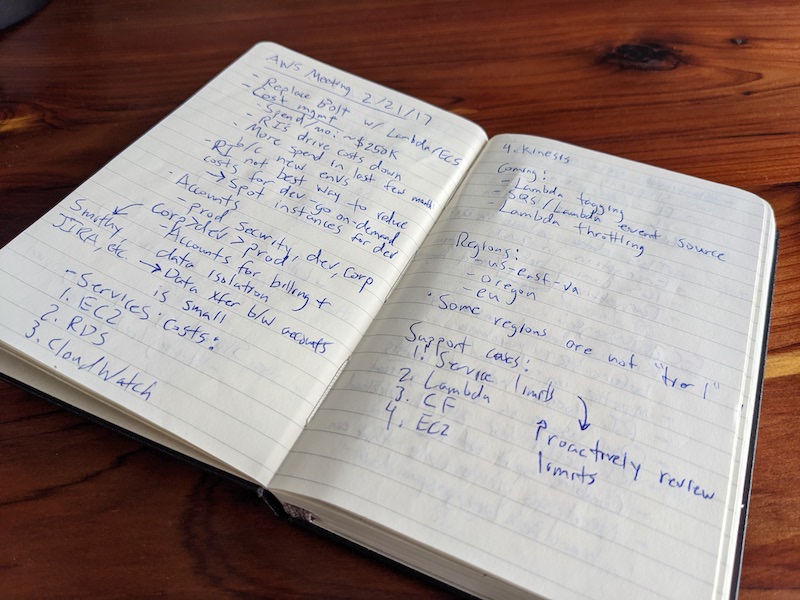 AWS Meeting 2/21/17
- Replace Bolt w/ Lambda/ECS
- Cost mgmt
- Spend/mo: ~$250K
- RIs drive costs down
- More spend in last few months
b/c new envs
- RI not best way to reduce
costs for dev - go on-demand
→ Spot instances for dev
- Accounts
- prod, security, dev, corp
Corp > dev > prod
Smithy
JIRA, etc.
- Accounts for billing +
data isolation
→ Data xfer b/w accounts
is small
- Services: costs:
1. EC2
2. RDS
3. CloudWatch
4. Kinesis
Coming:
- Lambda tagging
- SQS/Lambda event source
- Lambda throttling
Regions:
- us-east-va
- oregon
- eu
· Some regions are not "tier 1"
Support cases:
1. Service limits
2. Lambda
3. CF
4. EC2
Proactively review
limits